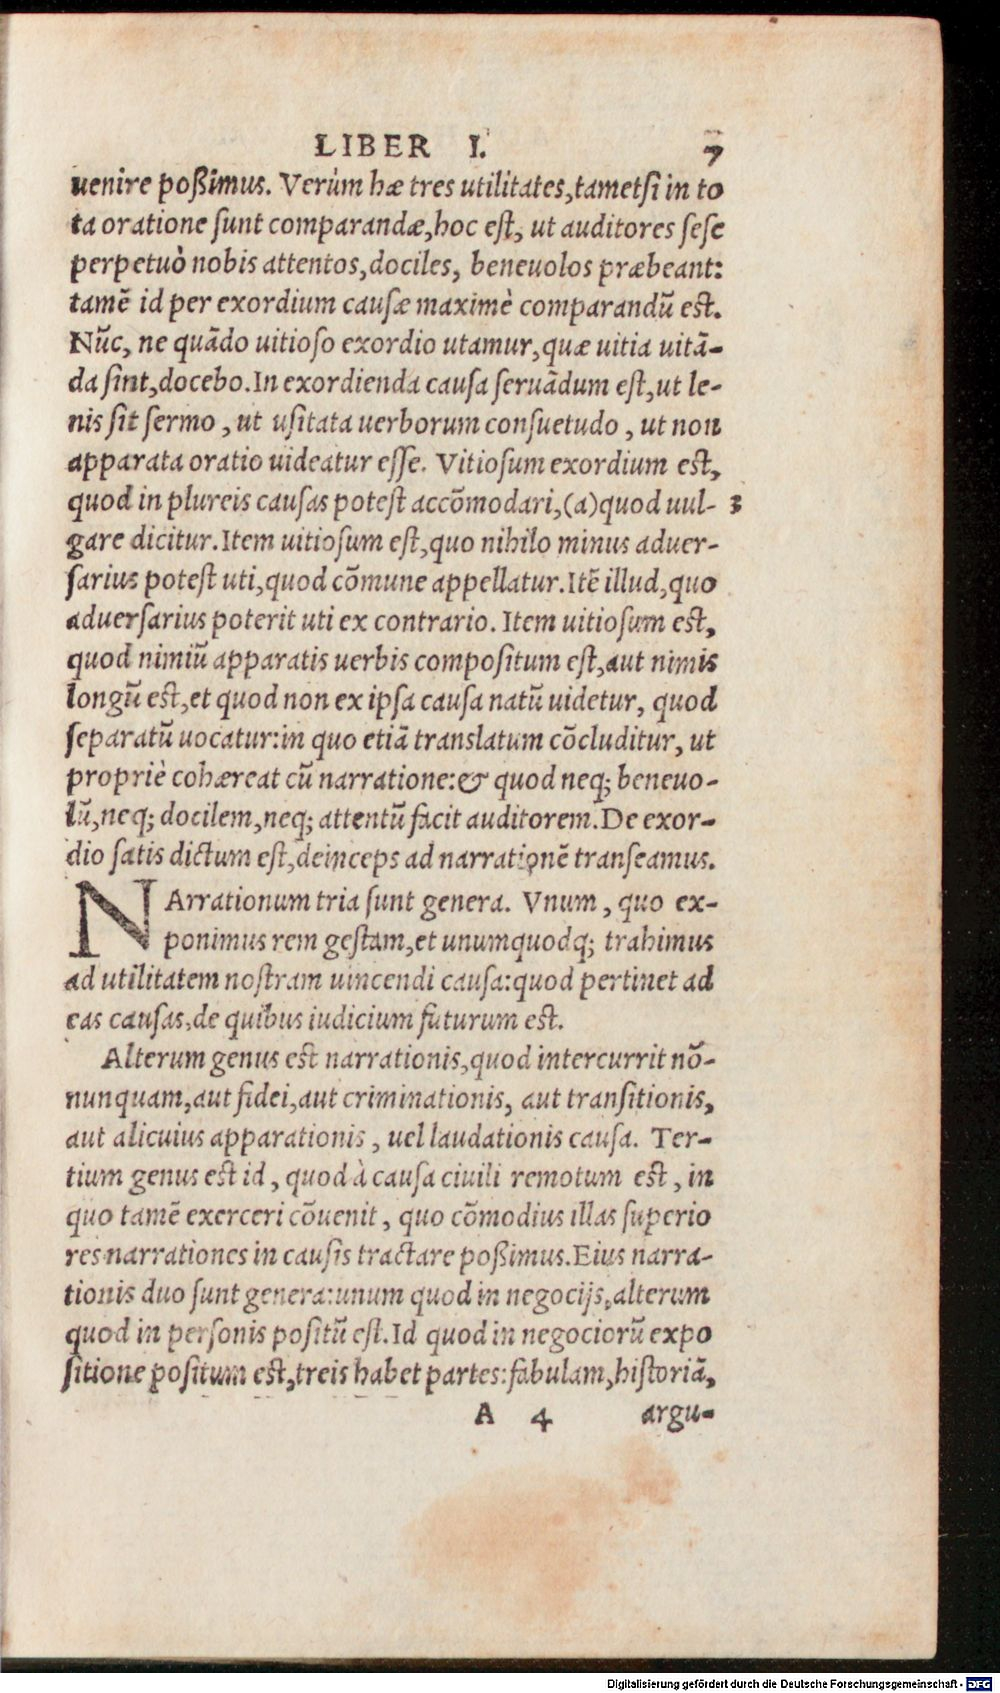 LIBER I. 7
uenire poßimus. Verùm hæ tres utilitates, tametsi in to
ta oratione sunt comparandæ, hoc est, ut auditores sese
perpetuò nobis attentos, dociles, beneuolos præbeant:
tamē id per exordium causæ maximè comparandū est.
Nūc, ne quādo uitioso exordio utamur, quæ uitia uitā-
da sint, docebo. In exordienda causa seruādum est, ut le-
nis sit sermo, ut usitata uerborum consuetudo, ut non
apparata oratio uideatur esse. Vitiosum exordium est,
quod in plureis causas potest accōmodari, (a) quod uul- 3
gare dicitur. Item uitiosum est, quo nihilo minus aduer-
sarius potest uti, quod cōmune appellatur. Itē illud, quo
aduersarius poterit uti ex contrario. Item uitiosum est,
quod nimiū apparatis uerbis compositum est, aut nimis
longū est, et quod non ex ipsa causa natū uidetur, quod
separatū uocatur: in quo etiā translatum cōcluditur, ut
propriè cohæreat cū narratione: & quod neq; beneuo-
lū, neq; docilem, neq; attentū facit auditorem. De exor-
dio satis dictum est, deinceps ad narrationē transeamus.
NArrationum tria sunt genera. Vnum, quo ex-
ponimus rem gestam, et unumquodq; trahimus
ad utilitatem nostram uincendi causa: quod pertinet ad
eas causas, de quibus iudicium futurum est.
Alterum genus est narrationis, quod intercurrit nō-
nunquam, aut fidei, aut criminationis, aut transitionis,
aut alicuius apparationis, uel laudationis causa. Ter-
tium genus est id, quod à causa ciuili remotum est, in
quo tamē exerceri cōuenit, quo cōmodius illas superio
res narrationes in causis tractare poßimus. Eius narra-
tionis duo sunt genera: unum quod in negocijs, alterum
quod in personis positū est. Id quod in negociorū expo
sitione positum est, treis habet partes: fabulam, historiā,
A 4 argu-
Digitalisierung gefördert durch die Deutsche Forschungsgemeinschaft - DFG